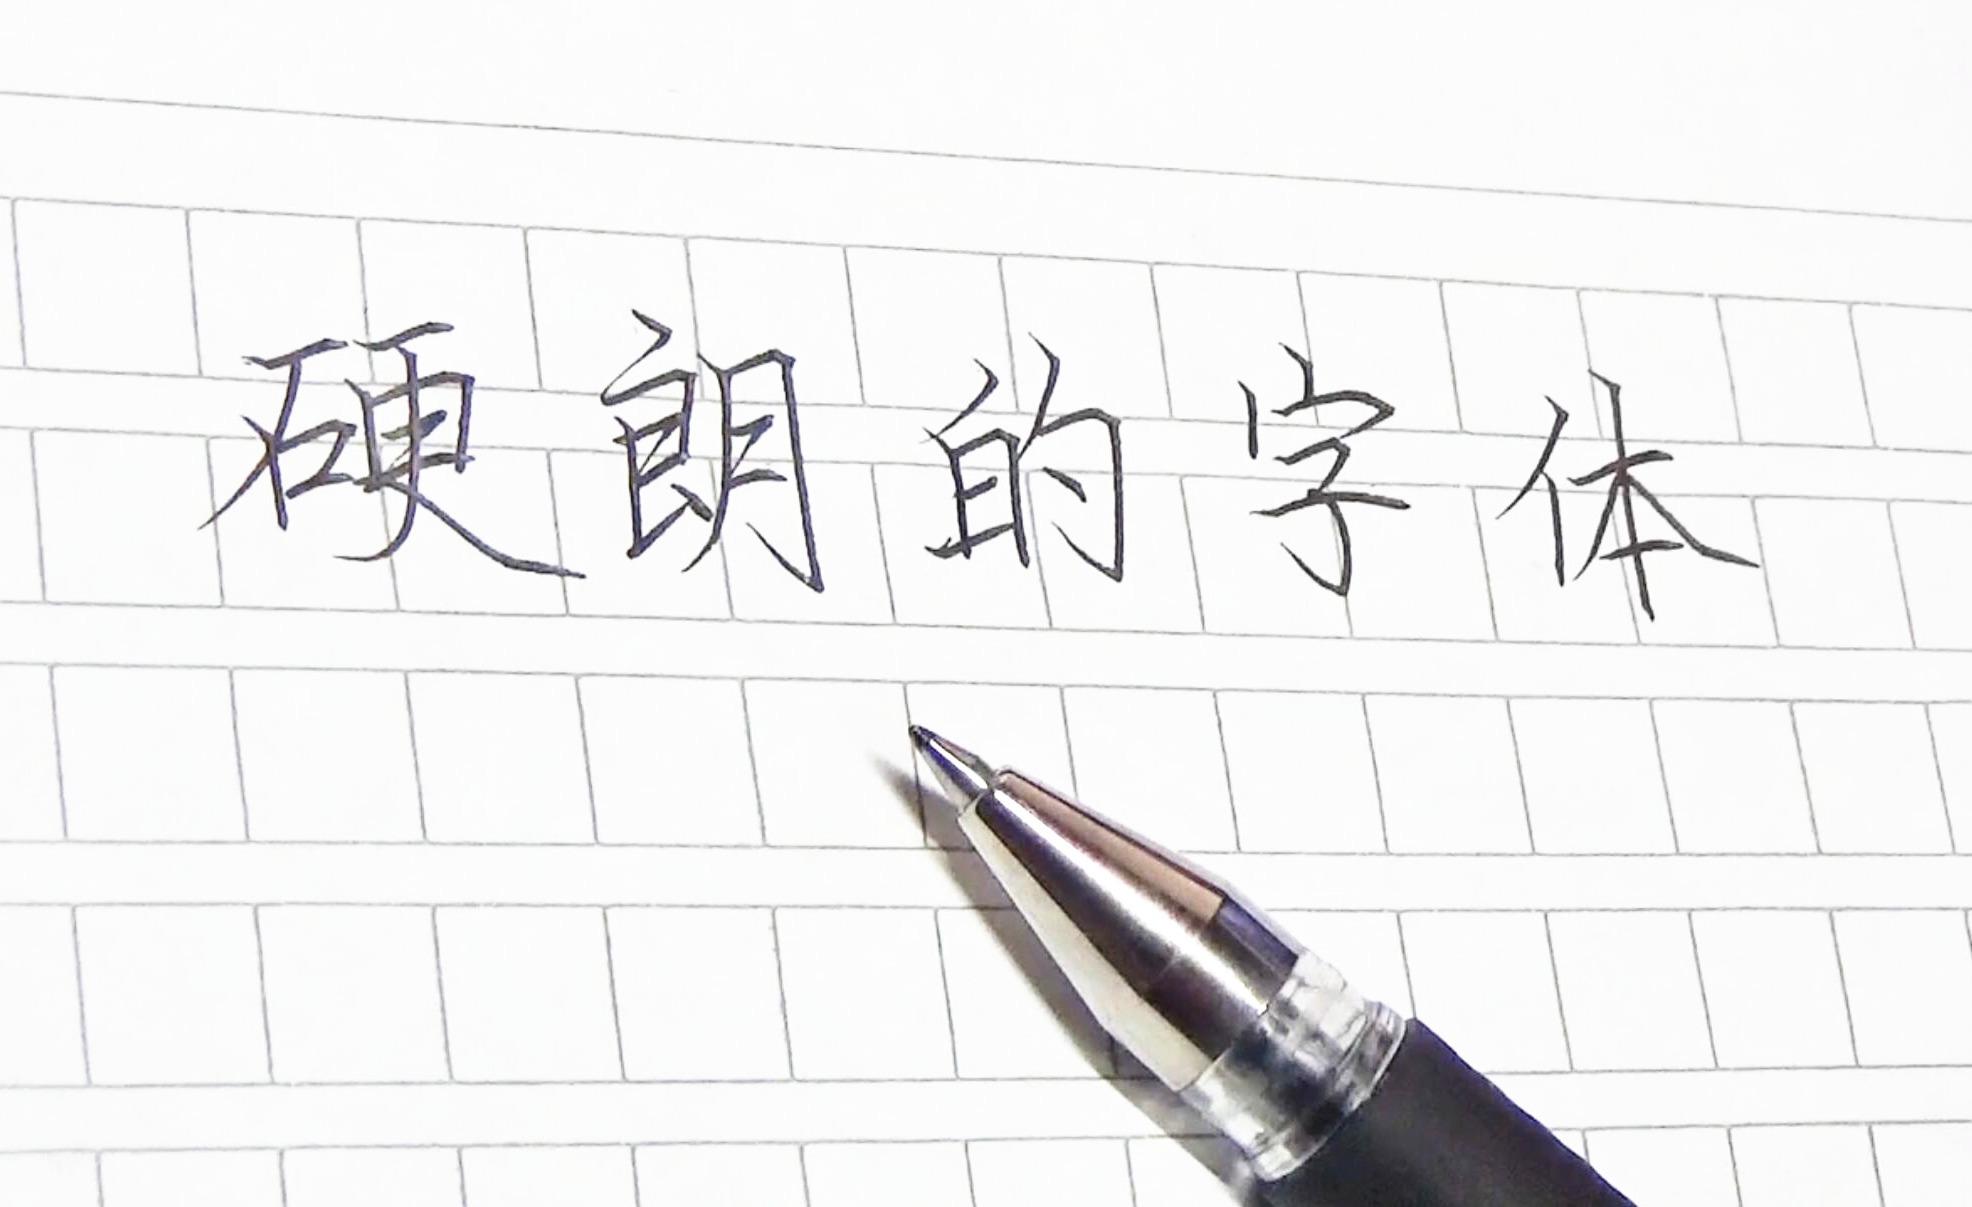 硬朗的字体